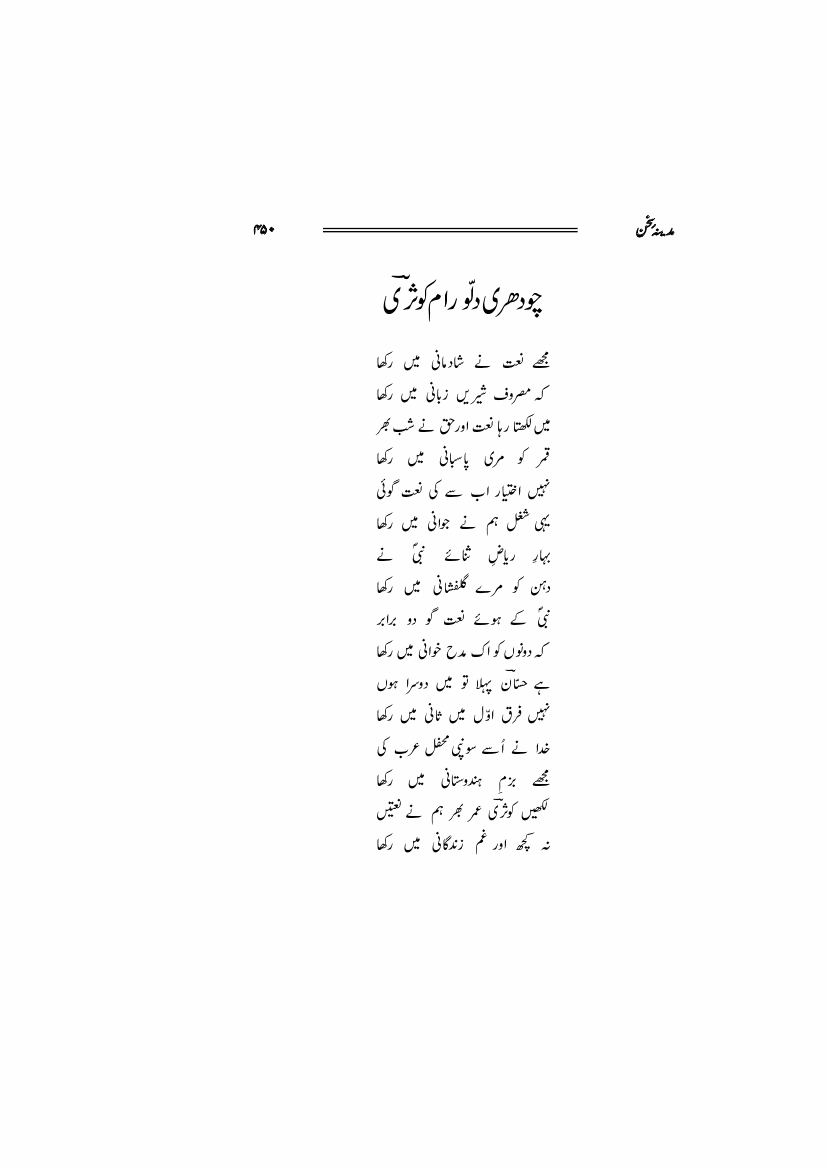 مدینہ سخن ۴۵۰
چودھری دلّو رام کوثریؔ
مجھے نعت نے شادمانی میں رکھا
کہ مصروف شیریں زبانی میں رکھا
میں لکھتا رہا نعت اور حق نے شب بھر
قمر کو مری پاسبانی میں رکھا
نہیں اختیار اب سے کی نعت گوئی
یہی شغل ہم نے جوانی میں رکھا
بہارِ ریاضِ ثنائے نبیؐ نے
دہن کو مرے گلفشانی میں رکھا
نبیؐ کے ہوئے نعت گو دو برابر
کہ دونوں کو اک مدح خوانی میں رکھا
ہے حسّانؔ پہلا تو میں دوسرا ہوں
نہیں فرق اوّل میں ثانی میں رکھا
خدا نے اُسے سونپی محفل عرب کی
مجھے بزمِ ہندوستانی میں رکھا
لکھیں کوثریؔ عمر بھر ہم نے نعتیں
نہ کچھ اور غم زندگانی میں رکھا